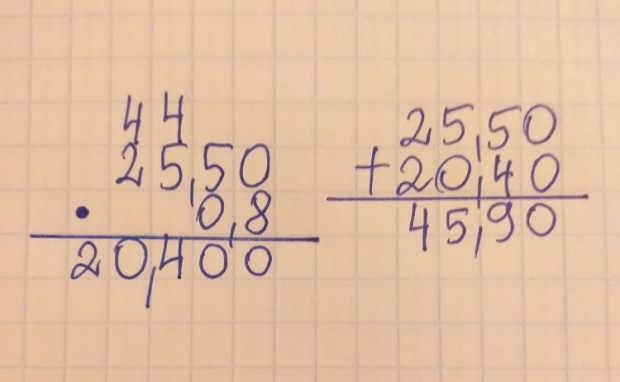 44
25,50
· 0,8
20,400
25,50
+20,40
45,90